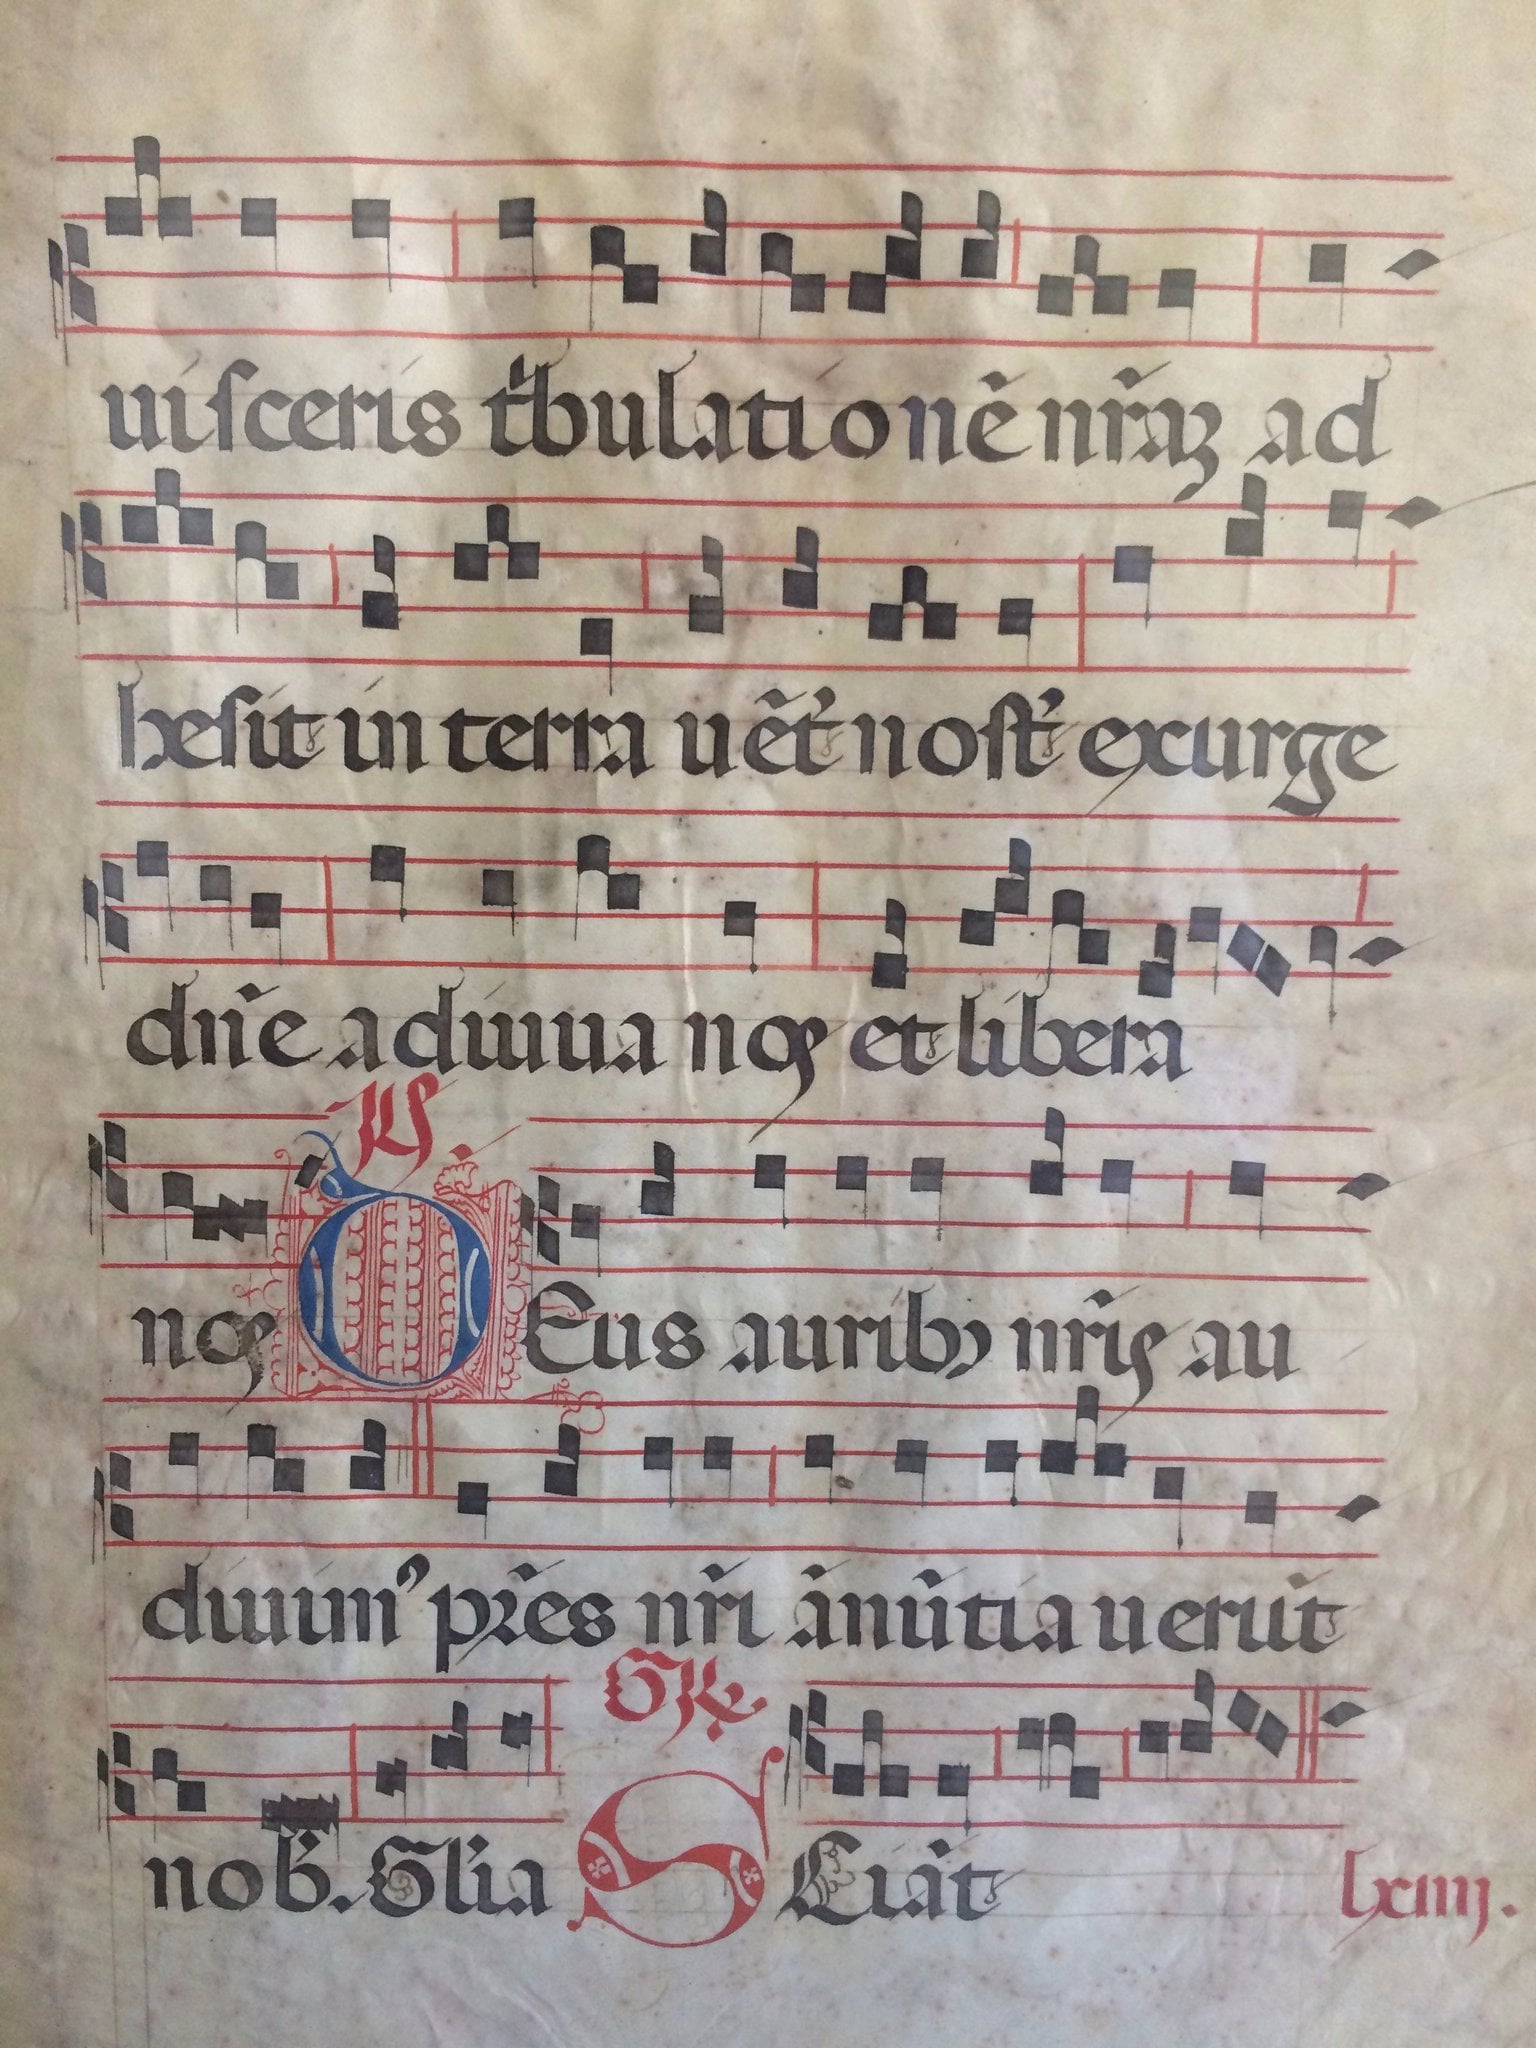 uisceris tͥbulationē nr̄aꝫ ad
hesit in terra uēt̕ nost̕ exurge
dn̄e adiuua nos et libera
ps.
nos DEus auribꝫ nr̄is au
diuimꝰ pr̄es nr̄i ānūtiauerūt
nob̕. Gl̄ia SCiāt
lxiiij.